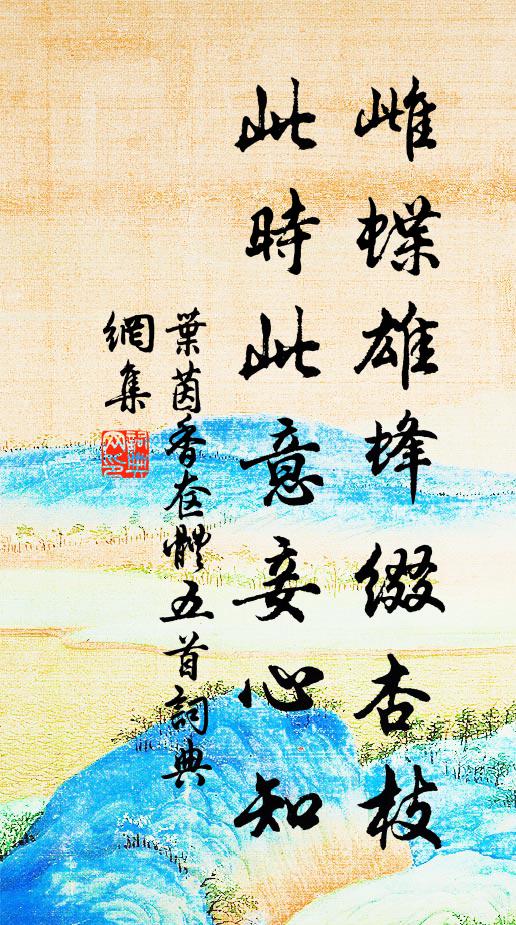 雌蝶雄蜂缀杏枝
此時此意妾心知
葉茵香奩體五首詞典
網集